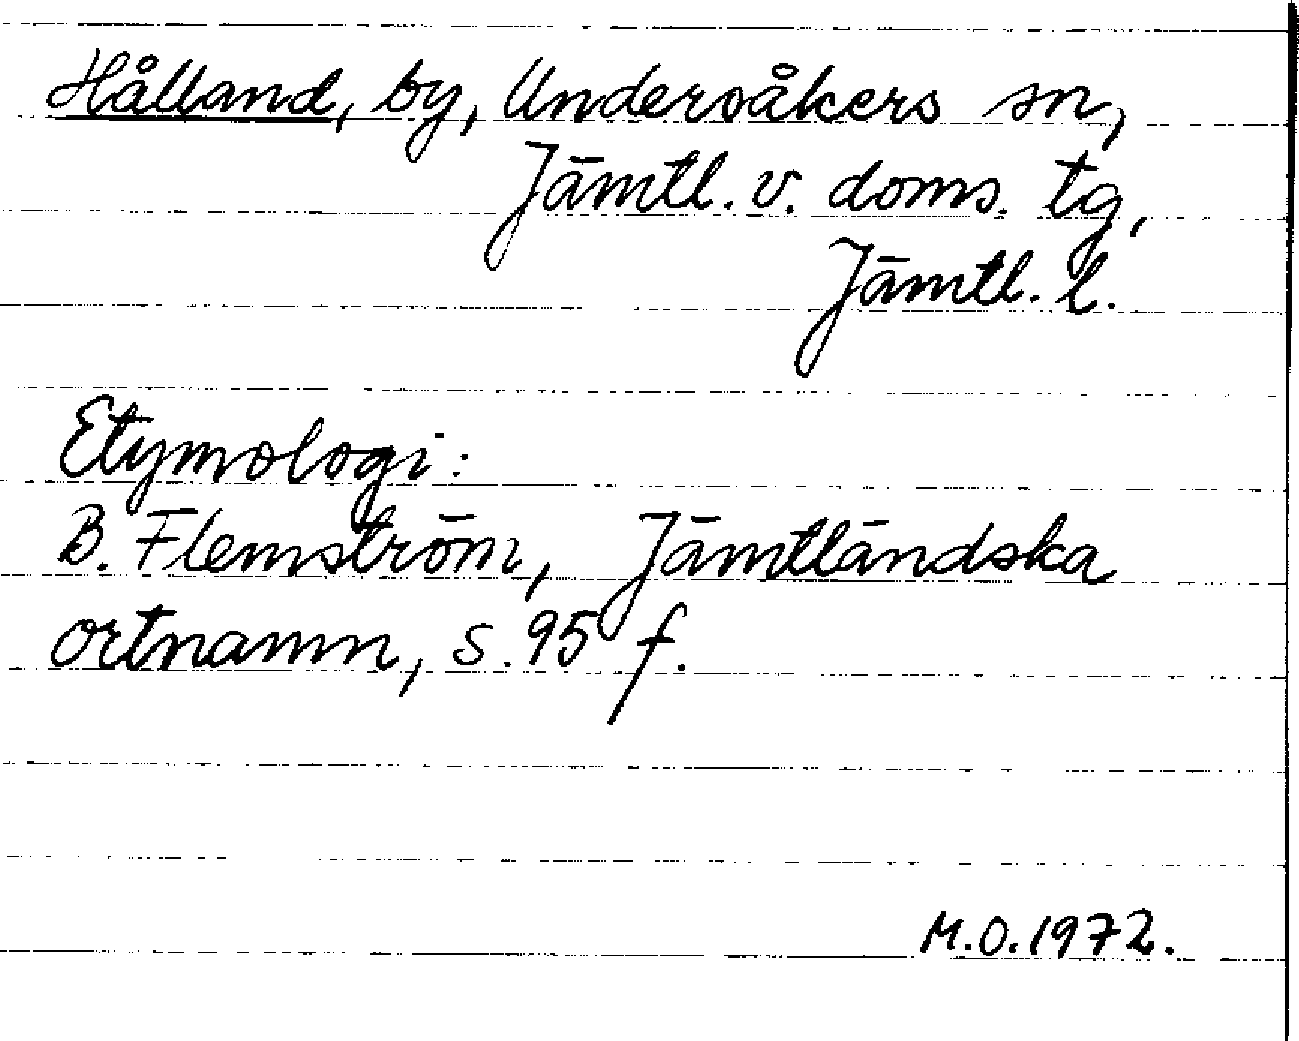 Hålland, by, Undersåkers sn,
Jämtl. v. doms. tg,
Jämtl. l.
Etymologi:
B. Flemström, Jämtländska
ortnamn, s. 95 f.
M.O. 1972.